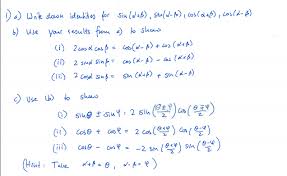 1) a) Write down identities for sin(α+β), sin(α-β), cos(α+β), cos(α-β)
b) Use your results from a) to show
(i) 2cosα cosβ = cos(α-β) + cos(α+β)
(ii) 2 sinα sinβ = cos(α-β) - cos(α+β)
(iii) 2 cosα sinβ = sin(α+β) + sin(α-β)
c) Use (b) to show
(i) sinθ ± sinφ = 2 sin((θ±φ)/2) cos((θ∓φ)/2)
(ii) cosθ + cosφ = 2 cos((θ+φ)/2) cos((θ-φ)/2)
(iii) cosθ - cosφ = -2 sin((θ+φ)/2) sin((θ-φ)/2)
(Hint: Take α+β = θ, α-β = φ)